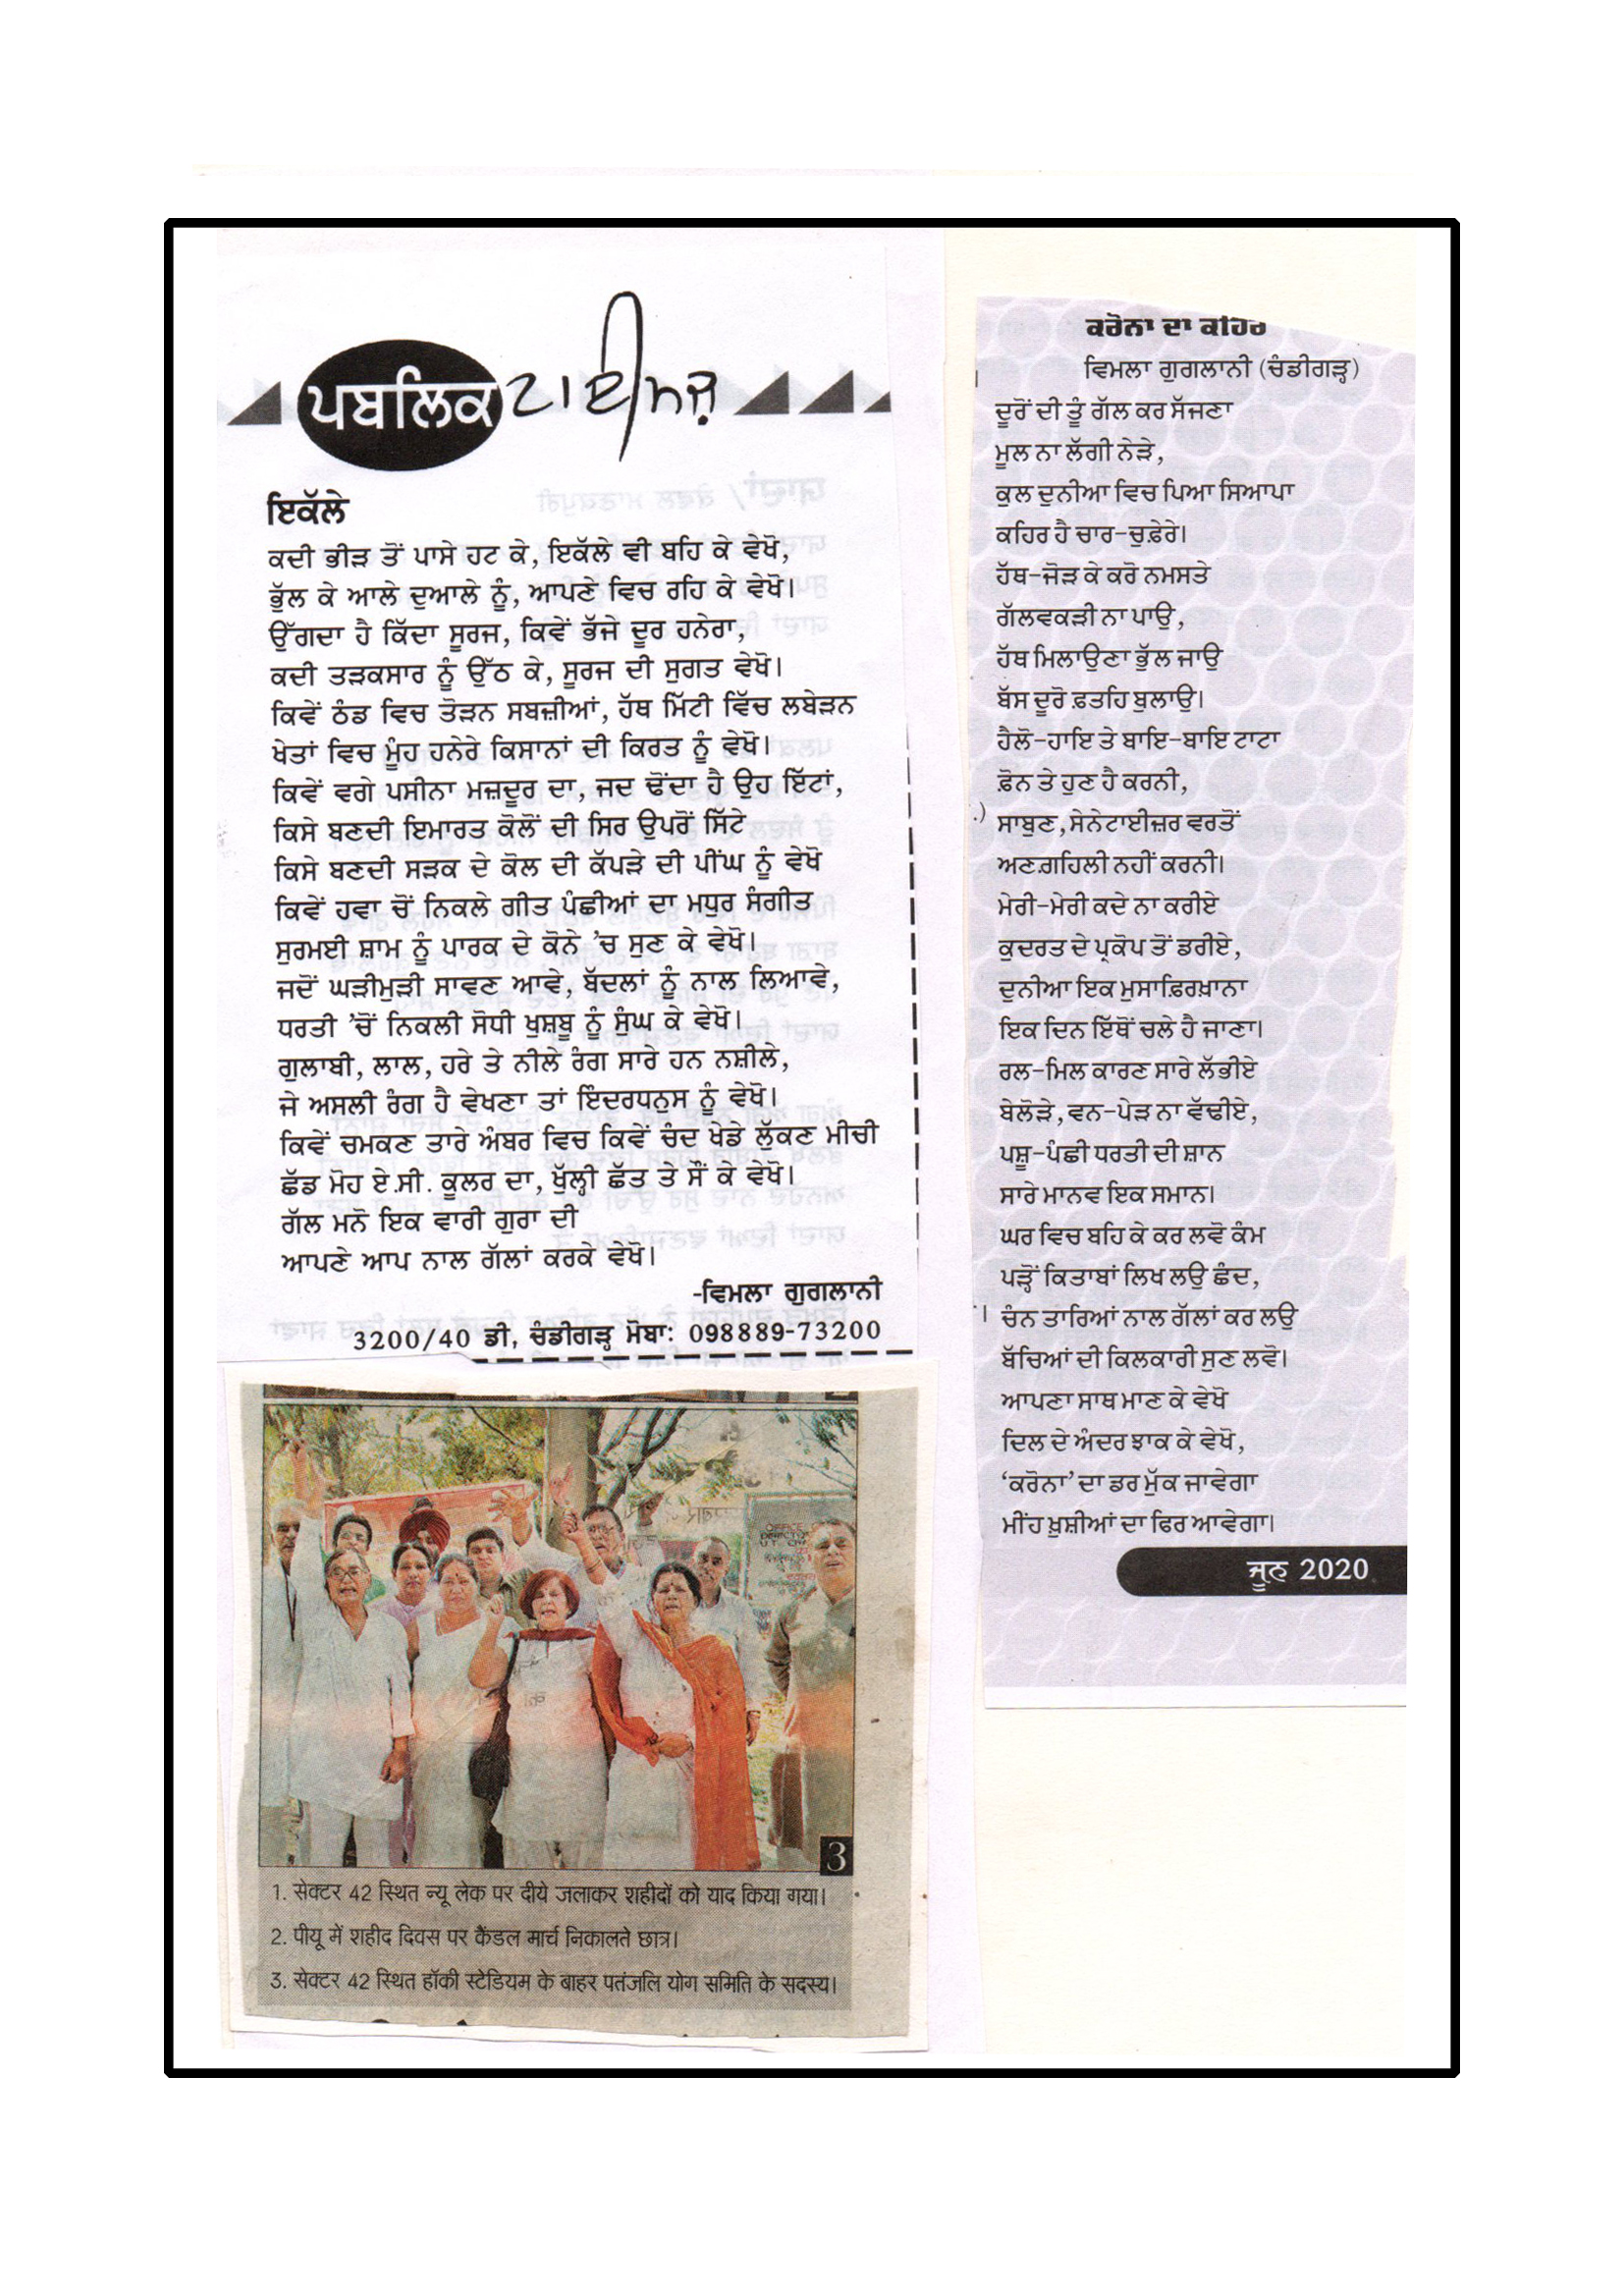 ਪਬਲਿਕ ਟਾਈਮਜ਼
ਇਕੱਲੇ
ਕਦੀ ਭੀੜ ਤੋਂ ਪਾਸੇ ਹਟ ਕੇ, ਇਕੱਲੇ ਵੀ ਬਹਿ ਕੇ ਵੇਖੋ,
ਭੁੱਲ ਕੇ ਆਲੇ ਦੁਆਲੇ ਨੂੰ, ਆਪਣੇ ਵਿਚ ਰਹਿ ਕੇ ਵੇਖੋ।
ਉੱਗਦਾ ਹੈ ਕਿੱਦਾ ਸੂਰਜ, ਕਿਵੇਂ ਭੱਜੇ ਦੂਰ ਹਨੇਰਾ,
ਕਦੀ ਤੜਕਸਾਰ ਨੂੰ ਉੱਠ ਕੇ, ਸੂਰਜ ਦੀ ਸੁਗਤ ਵੇਖੋ।
ਕਿਵੇਂ ਠੰਡ ਵਿਚ ਤੋੜਨ ਸਬਜ਼ੀਆਂ, ਹੱਥ ਮਿੱਟੀ ਵਿੱਚ ਲਬੇੜਨ
ਖੇਤਾਂ ਵਿਚ ਮੂੰਹ ਹਨੇਰੇ ਕਿਸਾਨਾਂ ਦੀ ਕਿਰਤ ਨੂੰ ਵੇਖੋ।
ਕਿਵੇਂ ਵਗੇ ਪਸੀਨਾ ਮਜ਼ਦੂਰ ਦਾ, ਜਦ ਢੋਂਦਾ ਹੈ ਉਹ ਇੱਟਾਂ,
ਕਿਸੇ ਬਣਦੀ ਇਮਾਰਤ ਕੋਲੋਂ ਦੀ ਸਿਰ ਉਪਰੋਂ ਸਿੱਟੇ
ਕਿਸੇ ਬਣਦੀ ਸੜਕ ਦੇ ਕੋਲ ਦੀ ਕੱਪੜੇ ਦੀ ਪੀਂਘ ਨੂੰ ਵੇਖੋ
ਕਿਵੇਂ ਹਵਾ ਚੋਂ ਨਿਕਲੇ ਗੀਤ ਪੰਛੀਆਂ ਦਾ ਮਧੁਰ ਸੰਗੀਤ
ਸੁਰਮਈ ਸ਼ਾਮ ਨੂੰ ਪਾਰਕ ਦੇ ਕੋਨੇ ’ਚ ਸੁਣ ਕੇ ਵੇਖੋ।
ਜਦੋਂ ਘੜੀਮੁੜੀ ਸਾਵਣ ਆਵੇ, ਬੱਦਲਾਂ ਨੂੰ ਨਾਲ ਲਿਆਵੇ,
ਧਰਤੀ ’ਚੋਂ ਨਿਕਲੀ ਸੋਧੀ ਖੁਸ਼ਬੂ ਨੂੰ ਸੁੰਘ ਕੇ ਵੇਖੋ।
ਗੁਲਾਬੀ, ਲਾਲ, ਹਰੇ ਤੇ ਨੀਲੇ ਰੰਗ ਸਾਰੇ ਹਨ ਨਸ਼ੀਲੇ,
ਜੇ ਅਸਲੀ ਰੰਗ ਹੈ ਵੇਖਣਾ ਤਾਂ ਇੰਦਰਧਨੁਸ ਨੂੰ ਵੇਖੋ।
ਕਿਵੇਂ ਚਮਕਣ ਤਾਰੇ ਅੰਬਰ ਵਿਚ ਕਿਵੇਂ ਚੰਦ ਖੇਡੇ ਲੁੱਕਣ ਮੀਚੀ
ਛੱਡ ਮੋਹ ਏ.ਸੀ. ਕੂਲਰ ਦਾ, ਖੁੱਲ੍ਹੀ ਛੱਤ ਤੇ ਸੌਂ ਕੇ ਵੇਖੋ।
ਗੱਲ ਮਨੋ ਇਕ ਵਾਰੀ ਗੁਰਾ ਦੀ
ਆਪਣੇ ਆਪ ਨਾਲ ਗੱਲਾਂ ਕਰਕੇ ਵੇਖੋ।
-ਵਿਮਲਾ ਗੁਗਲਾਨੀ
3200/40 ਡੀ, ਚੰਡੀਗੜ੍ਹ ਮੋਬਾ: 098889-73200
3
1. सेक्टर 42 स्थित न्यू लेक पर दीये जलाकर शहीदों को याद किया गया।
2. पीयू में शहीद दिवस पर कैंडल मार्च निकालते छात्र।
3. सेक्टर 42 स्थित हॉकी स्टेडियम के बाहर पतंजलि योग समिति के सदस्य।
ਕਰੋਨਾ ਦਾ ਕਹਿਰ
ਵਿਮਲਾ ਗੁਗਲਾਨੀ (ਚੰਡੀਗੜ੍ਹ)
ਦੂਰੋਂ ਦੀ ਤੂੰ ਗੱਲ ਕਰ ਸੱਜਣਾ
ਮੂਲ ਨਾ ਲੱਗੀ ਨੇੜੇ,
ਕੁਲ ਦੁਨੀਆ ਵਿਚ ਪਿਆ ਸਿਆਪਾ
ਕਹਿਰ ਹੈ ਚਾਰ-ਚੁਫ਼ੇਰੇ।
ਹੱਥ-ਜੋੜ ਕੇ ਕਰੋ ਨਮਸਤੇ
ਗੱਲਵਕੜੀ ਨਾ ਪਾਉ,
ਹੱਥ ਮਿਲਾਉਣਾ ਭੁੱਲ ਜਾਉ
ਬੱਸ ਦੂਰੋ ਫ਼ਤਹਿ ਬੁਲਾਉ।
ਹੈਲੋ-ਹਾਇ ਤੇ ਬਾਇ-ਬਾਇ ਟਾਟਾ
ਫ਼ੋਨ ਤੇ ਹੁਣ ਹੈ ਕਰਨੀ,
ਸਾਬੁਣ, ਸੇਨੇਟਾਈਜ਼ਰ ਵਰਤੋਂ
ਅਣਗ਼ਹਿਲੀ ਨਹੀਂ ਕਰਨੀ।
ਮੇਰੀ-ਮੇਰੀ ਕਦੇ ਨਾ ਕਰੀਏ
ਕੁਦਰਤ ਦੇ ਪ੍ਰਕੋਪ ਤੋਂ ਡਰੀਏ,
ਦੁਨੀਆ ਇਕ ਮੁਸਾਫ਼ਿਰਖ਼ਾਨਾ
ਇਕ ਦਿਨ ਇੱਥੋਂ ਚਲੇ ਹੈ ਜਾਣਾ।
ਰਲ-ਮਿਲ ਕਾਰਣ ਸਾਰੇ ਲੱਭੀਏ
ਬੇਲੋੜੇ, ਵਨ-ਪੇੜ ਨਾ ਵੱਢੀਏ,
ਪਸ਼ੂ-ਪੰਛੀ ਧਰਤੀ ਦੀ ਸ਼ਾਨ
ਸਾਰੇ ਮਾਨਵ ਇਕ ਸਮਾਨ।
ਘਰ ਵਿਚ ਬਹਿ ਕੇ ਕਰ ਲਵੋ ਕੰਮ
ਪੜ੍ਹੋਂ ਕਿਤਾਬਾਂ ਲਿਖ ਲਉ ਛੰਦ,
ਚੰਨ ਤਾਰਿਆਂ ਨਾਲ ਗੱਲਾਂ ਕਰ ਲਉ
ਬੱਚਿਆਂ ਦੀ ਕਿਲਕਾਰੀ ਸੁਣ ਲਵੋ।
ਆਪਣਾ ਸਾਥ ਮਾਣ ਕੇ ਵੇਖੋ
ਦਿਲ ਦੇ ਅੰਦਰ ਝਾਕ ਕੇ ਵੇਖੋ,
‘ਕਰੋਨਾ’ ਦਾ ਡਰ ਮੁੱਕ ਜਾਵੇਗਾ
ਮੀਂਹ ਖ਼ੁਸ਼ੀਆਂ ਦਾ ਫਿਰ ਆਵੇਗਾ।
ਜੂਨ 2020